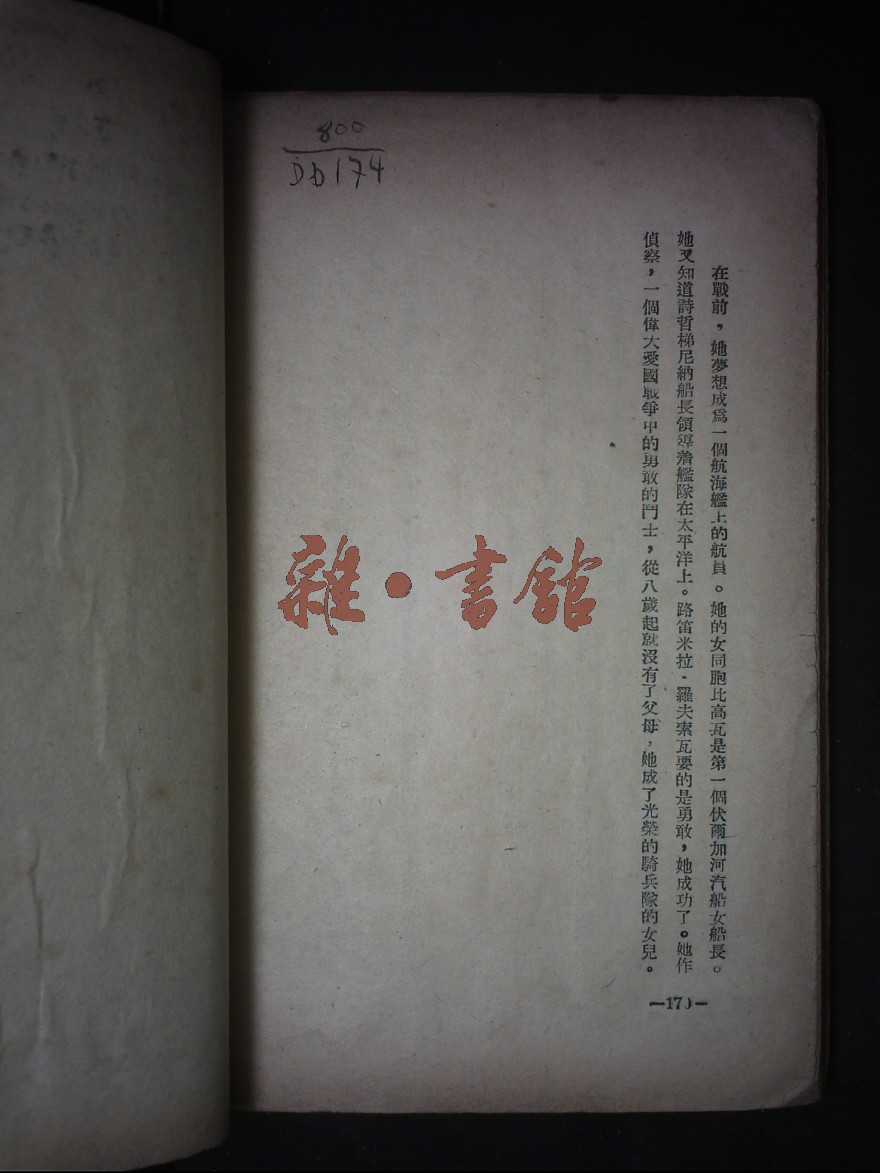 800
DD174
在戰前，她夢想成爲一個航海艦上的航員。她的女同胞比高瓦是第一個伏爾加河汽船女船長。
她又知道詩哲梯尼納船長領導着艦隊在太平洋上。路笛米拉·羅夫索瓦要的是勇敢，她成功了。她作
偵察，一個偉大愛國戰爭中的勇敢的鬥士，從八歲起就沒有了父母，她成了光榮的騎兵隊的女兒。
雜·書館